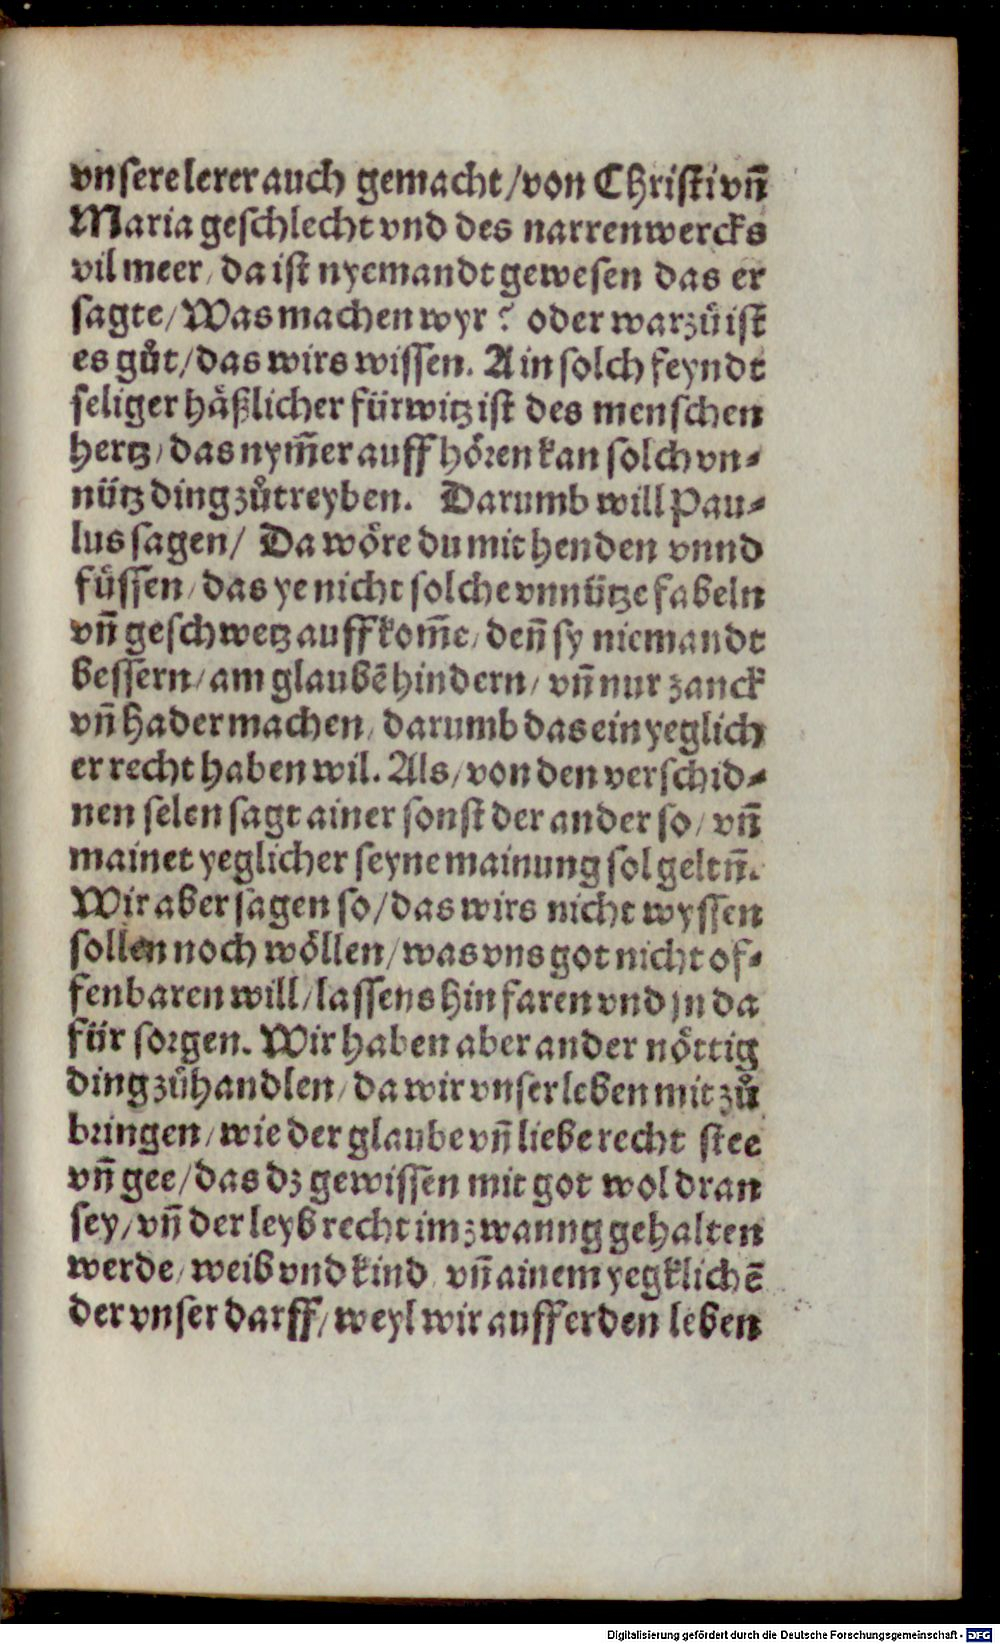 vnsere lerer auch gemacht/von Christi vñ
Maria geschlecht vnd des narrenwercks
vil meer/ da ist nyemandt gewesen das er
sagte/Was machen wyr? oder warzů ist
es gůt/das wirs wissen. Ain solch feyndt
seliger häßlicher fürwitz ist des menschen
hertz/das nym̃er auff hören kan solch vn-
nütz ding zůtreyben. Darumb will Pau-
lus sagen/ Da wöre du mit henden vnnd
füssen/das ye nicht solche vnnütze fabeln
vñ geschwetz auffkom̃e/deñ sy niemandt
bessern/am glaubē hindern/vñ nur zanck
vñ hader machen/darumb das ein yeglich
er recht haben wil. Als/von den verschid-
nen selen sagt ainer sonst der ander so/vñ
mainet yeglicher seyne mainung sol geltñ.
Wir aber sagen so/das wirs nicht wyssen
sollen noch wöllen/was vns got nicht of-
fenbaren will/lassens hin faren vnd jn da
für sorgen. Wir haben aber ander nöttig
ding zůhandlen/da wir vnser leben mit zů
bringen/wie der glaube vñ liebe recht stee
vñ gee/das dz gewissen mit got wol dran
sey/vñ der leyb recht im zwanng gehalten
werde/weib vnd kind vñ ainem yegklichē
der vnser darff/weyl wir auff erden leben
Digitalisierung gefördert durch die Deutsche Forschungsgemeinschaft - DFG